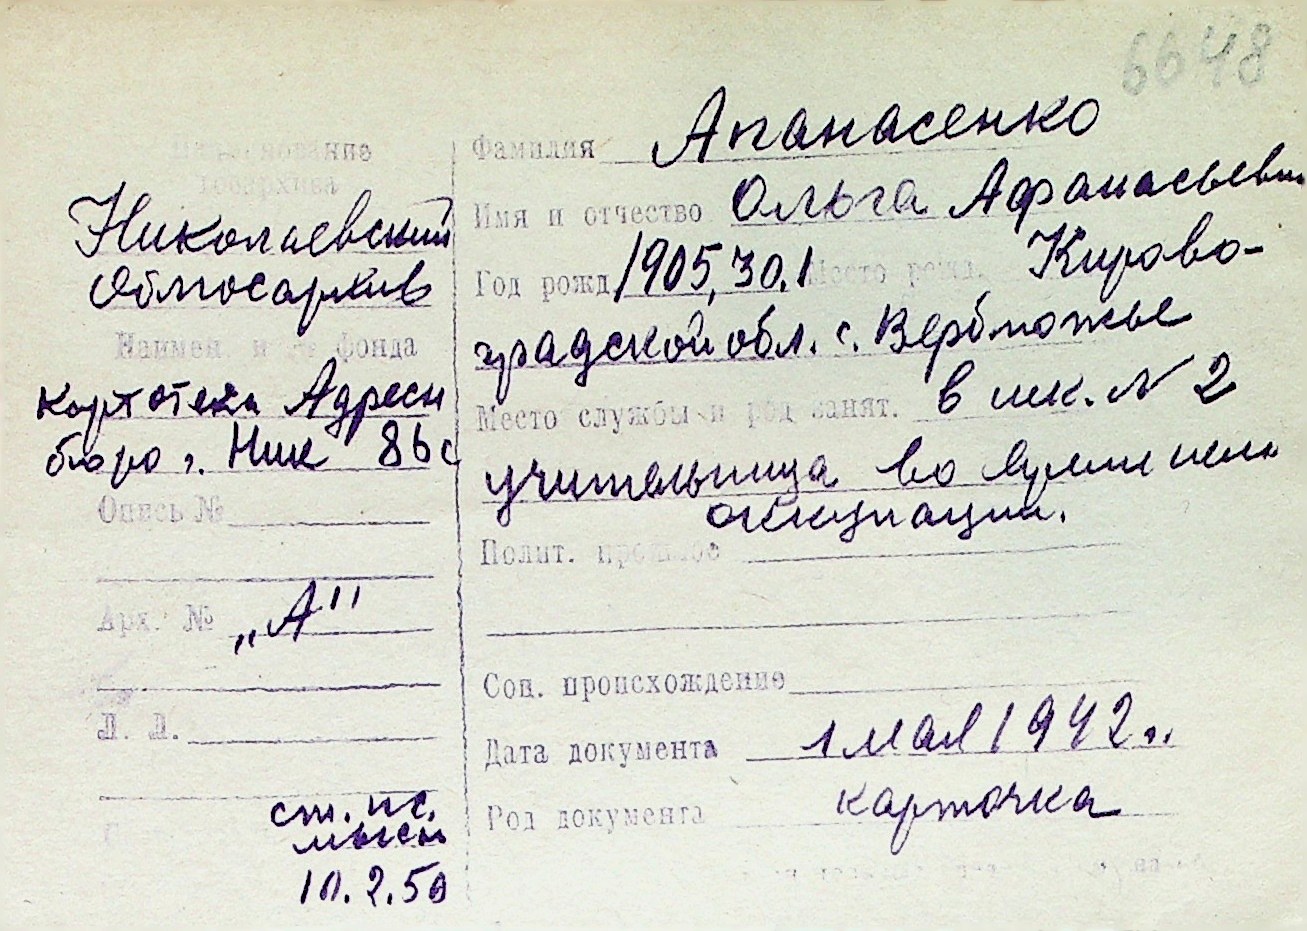 6648
Наименование
госархива
Николаевский
Облгосархив
Наимен и № фонда
Картотека Адресн
бюро г. Ник 86с
Опись №
Арх. № „А"
Л. Л.
ст. ис.
10.2.50
Фамилия Апанасенко
Имя и отчество Ольга Афанасьевн
Год рожд 1905, 30.1 Место рожд. Кирово-
градской обл. с. Вербможье
Место службы и род занят. в шк. № 2
учительница во время нем
оккупации.
Полит. прошлое
Соц. происхождение
Дата документа 1 мая 1942 г.
Род документа карточка